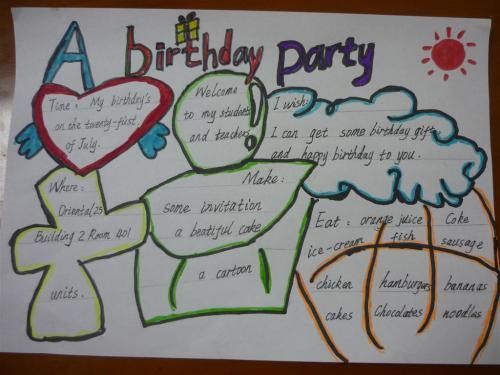 A birthday party
Time: My birthday's
on the twenty-first
of July.
Welcome
to my students
and teachers
I wish:
I can get some birthday gift
and happy birthday to you.
Where:
Oriental 25
Building 2 Room 401
units.
Make:
some invitation
a beatiful cake
a cartoon
Eat: orange juice Coke
ice-cream fish sausage
chicken hamburgers bananas
cakes Chocolates noodles